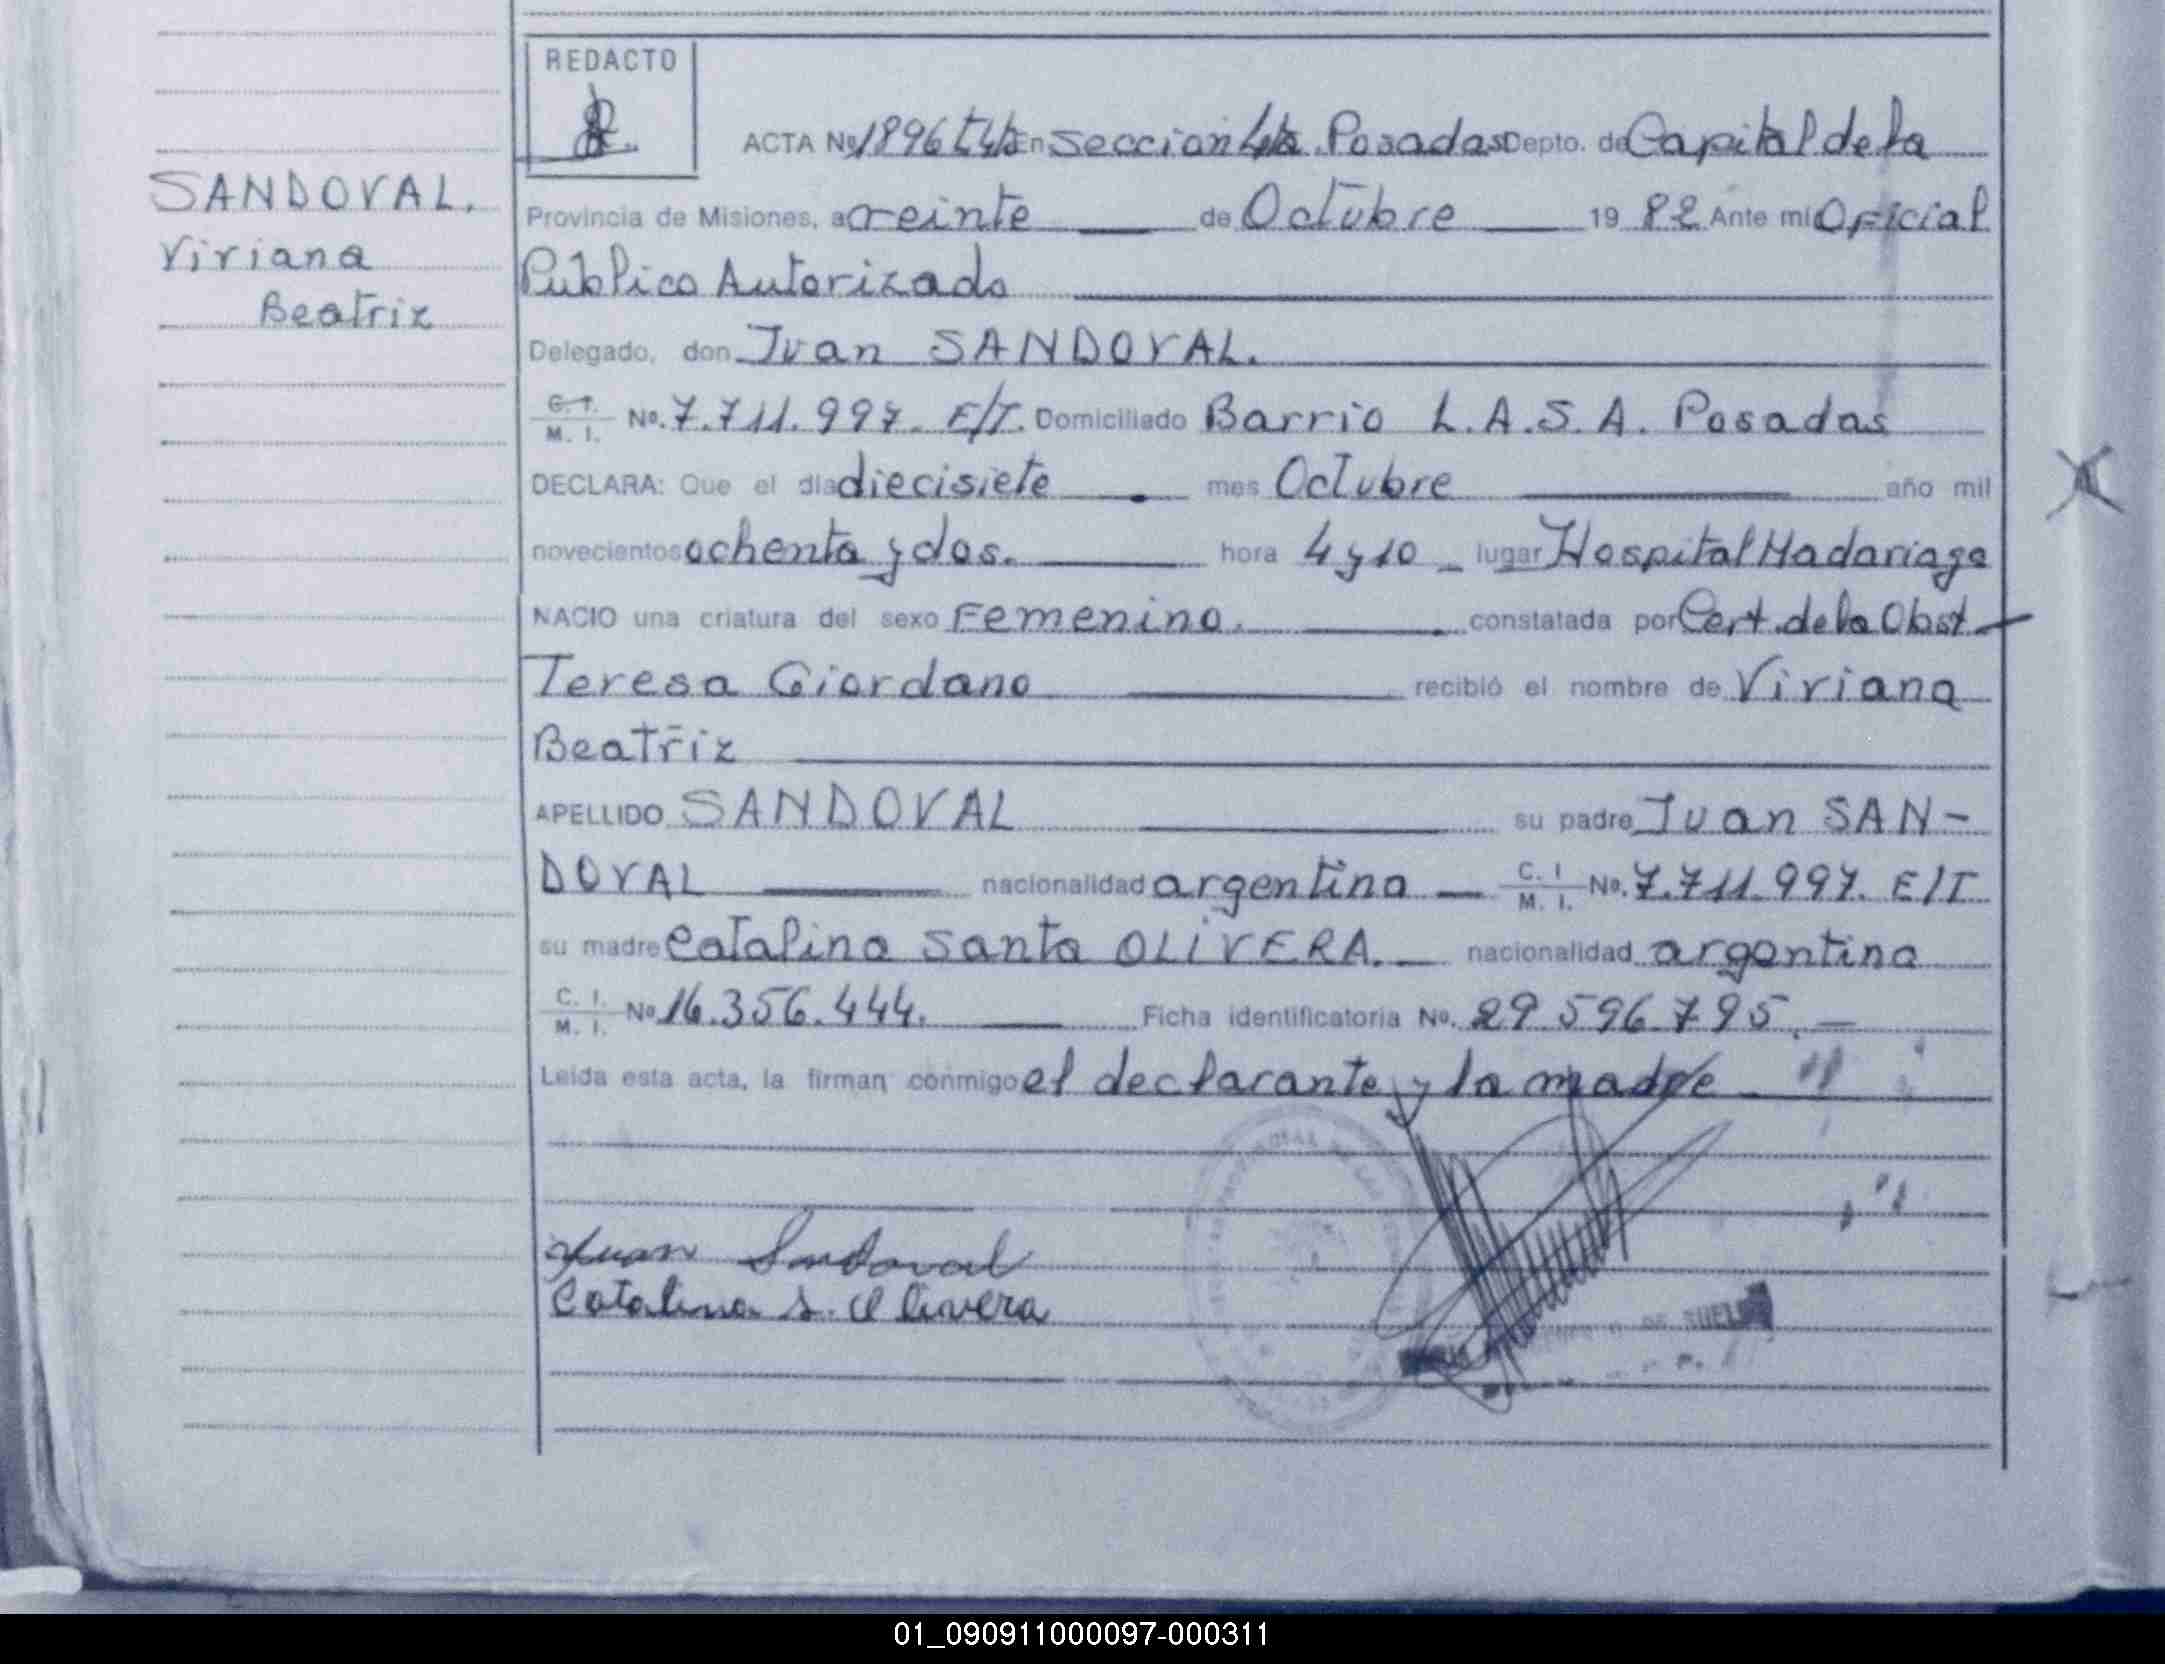 REDACTO
ACTA No 1896 T4to En Seccion 4ta. Posadas Depto. de Capital de la
SANDOVAL.
Provincia de Misiones, a veinte de Octubre 19 82 Ante mi Oficial
Viviana
Publico Autorizado
Beatriz
Delegado, don Juan SANDOVAL.
C. I. M. I. No. 7.711.997. E/T. Domiciliado Barrio L.A.S.A. Posadas
DECLARA: Que el día diecisiete mes Octubre año mil
novecientos ochenta y dos. hora 4 y 10 lugar Hospital Madariaga
NACIO una criatura del sexo Femenino. constatada por Cert. de la Obst
Teresa Giordano recibió el nombre de Viviana
Beatriz
APELLIDO SANDOVAL su padre Juan SAN-
DOVAL nacionalidad argentino C. I M. I. No. 7.711.997. E/T
su madre Catalina Santa OLIVERA. nacionalidad argentina
C. I. M. I. No 16.356.444. Ficha identificatoria No. 29 596.795.
Leida esta acta, la firman conmigo el declarante y la madre
Juan Sandoval
Catalina S. Olivera
01_090911000097-000311